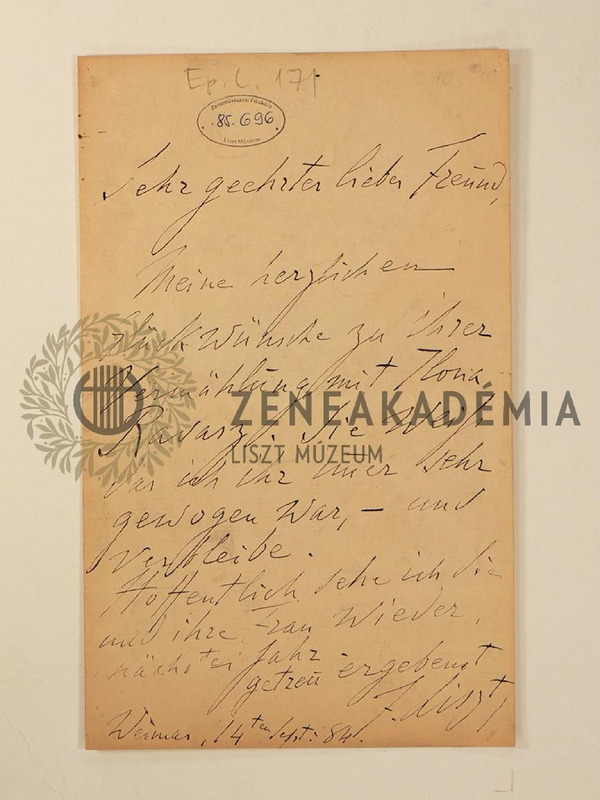 Ep. L. 171
Zeneművészeti Főiskola
85.696
Liszt Múzeum
Sehr geehrter lieber Freund,
Meine herzlichen
Glückwünsche zu ihrer
Vermählung mit Ilona
Ravasz. Sie weiß
ich ihr immer sehr
gewogen war, – und
verbleibe.
Hoffentlich sehe ich sie
und ihre Frau wieder,
nächstes Jahr
getreu ergebenst
F. Liszt
Weimar, 14ten Sept: 84.
ZENEAKADÉMIA
LISZT MÚZEUM